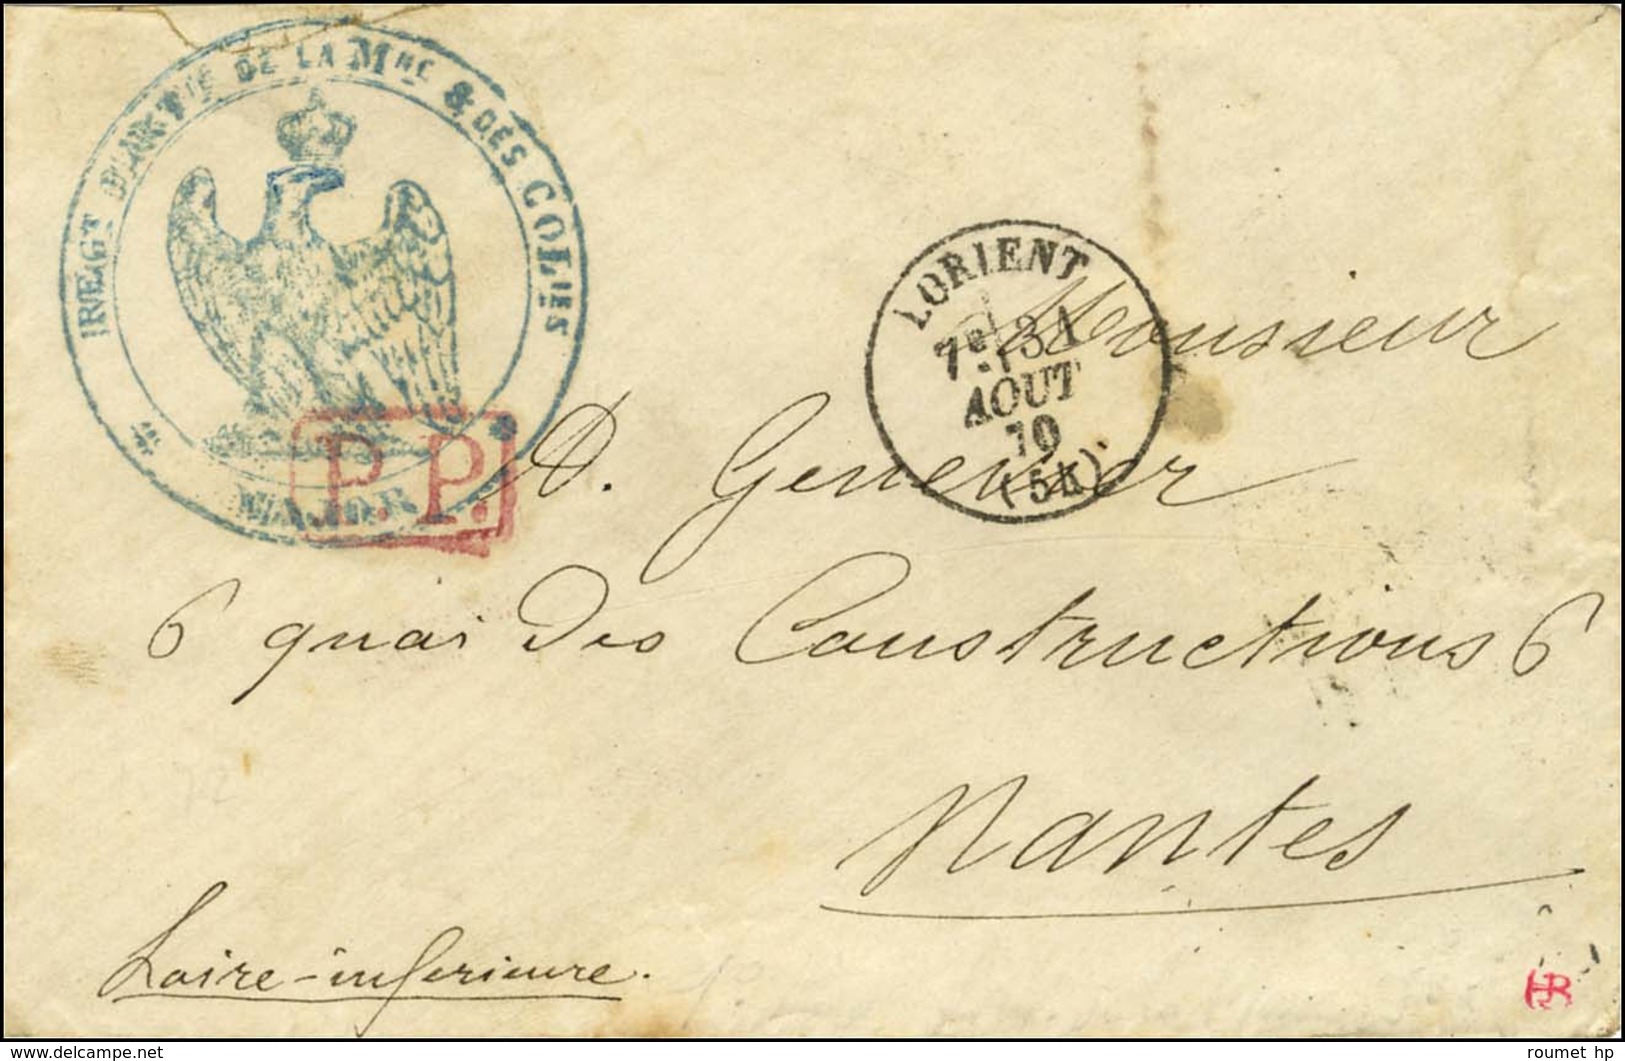 REGT D'ARTie DE LA Mne & DES COLies
MAJOR
P.P.
LORIENT
7e 31
AOUT
70
(54)
Monsieur
A. Genevier
6 quai Des Constructions 6
Nantes
Loire-inferieure.
HR
Plus d'images sur www.delcampe.net
roumet hp